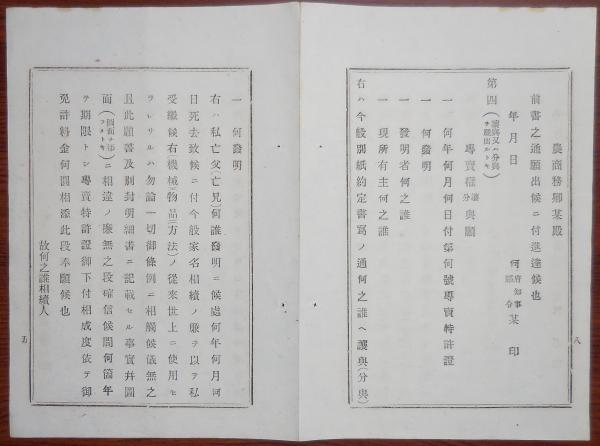 農商務卿某殿
前書之通願出候ニ付進達候也
年月日
何府知事縣令某印
第四(讓與又ハ分與ヲ願出ルトキ)
專賣權讓分與願
一何年何月何日付第何號專賣特許證
一何發明
一發明者何之誰
一現所有主何之誰
右ハ今般別紙約定書寫ノ通何之誰ヘ讓與(分與)
八
一何發明
右ハ私亡父(亡兄)何誰發明ニ候處何年何月何
日死去致候ニ付今般家名相續ノ廉ヲ以テ私
受繼候右機械(物品)(方法)ノ從來世上ニ使用セ
ラレサルハ勿論一切御條例ニ相觸候儀無之
且此願書及別封明細書ニ記載セル事實幷圖
面(圖面ヲ添フルトキ)ニ相違ノ廉無之段確信候間何箇年
ヲ期限トシ專賣特許證御下付相成度依テ御
免許料金何圓相添此段奉願候也
故何之誰相續人
五